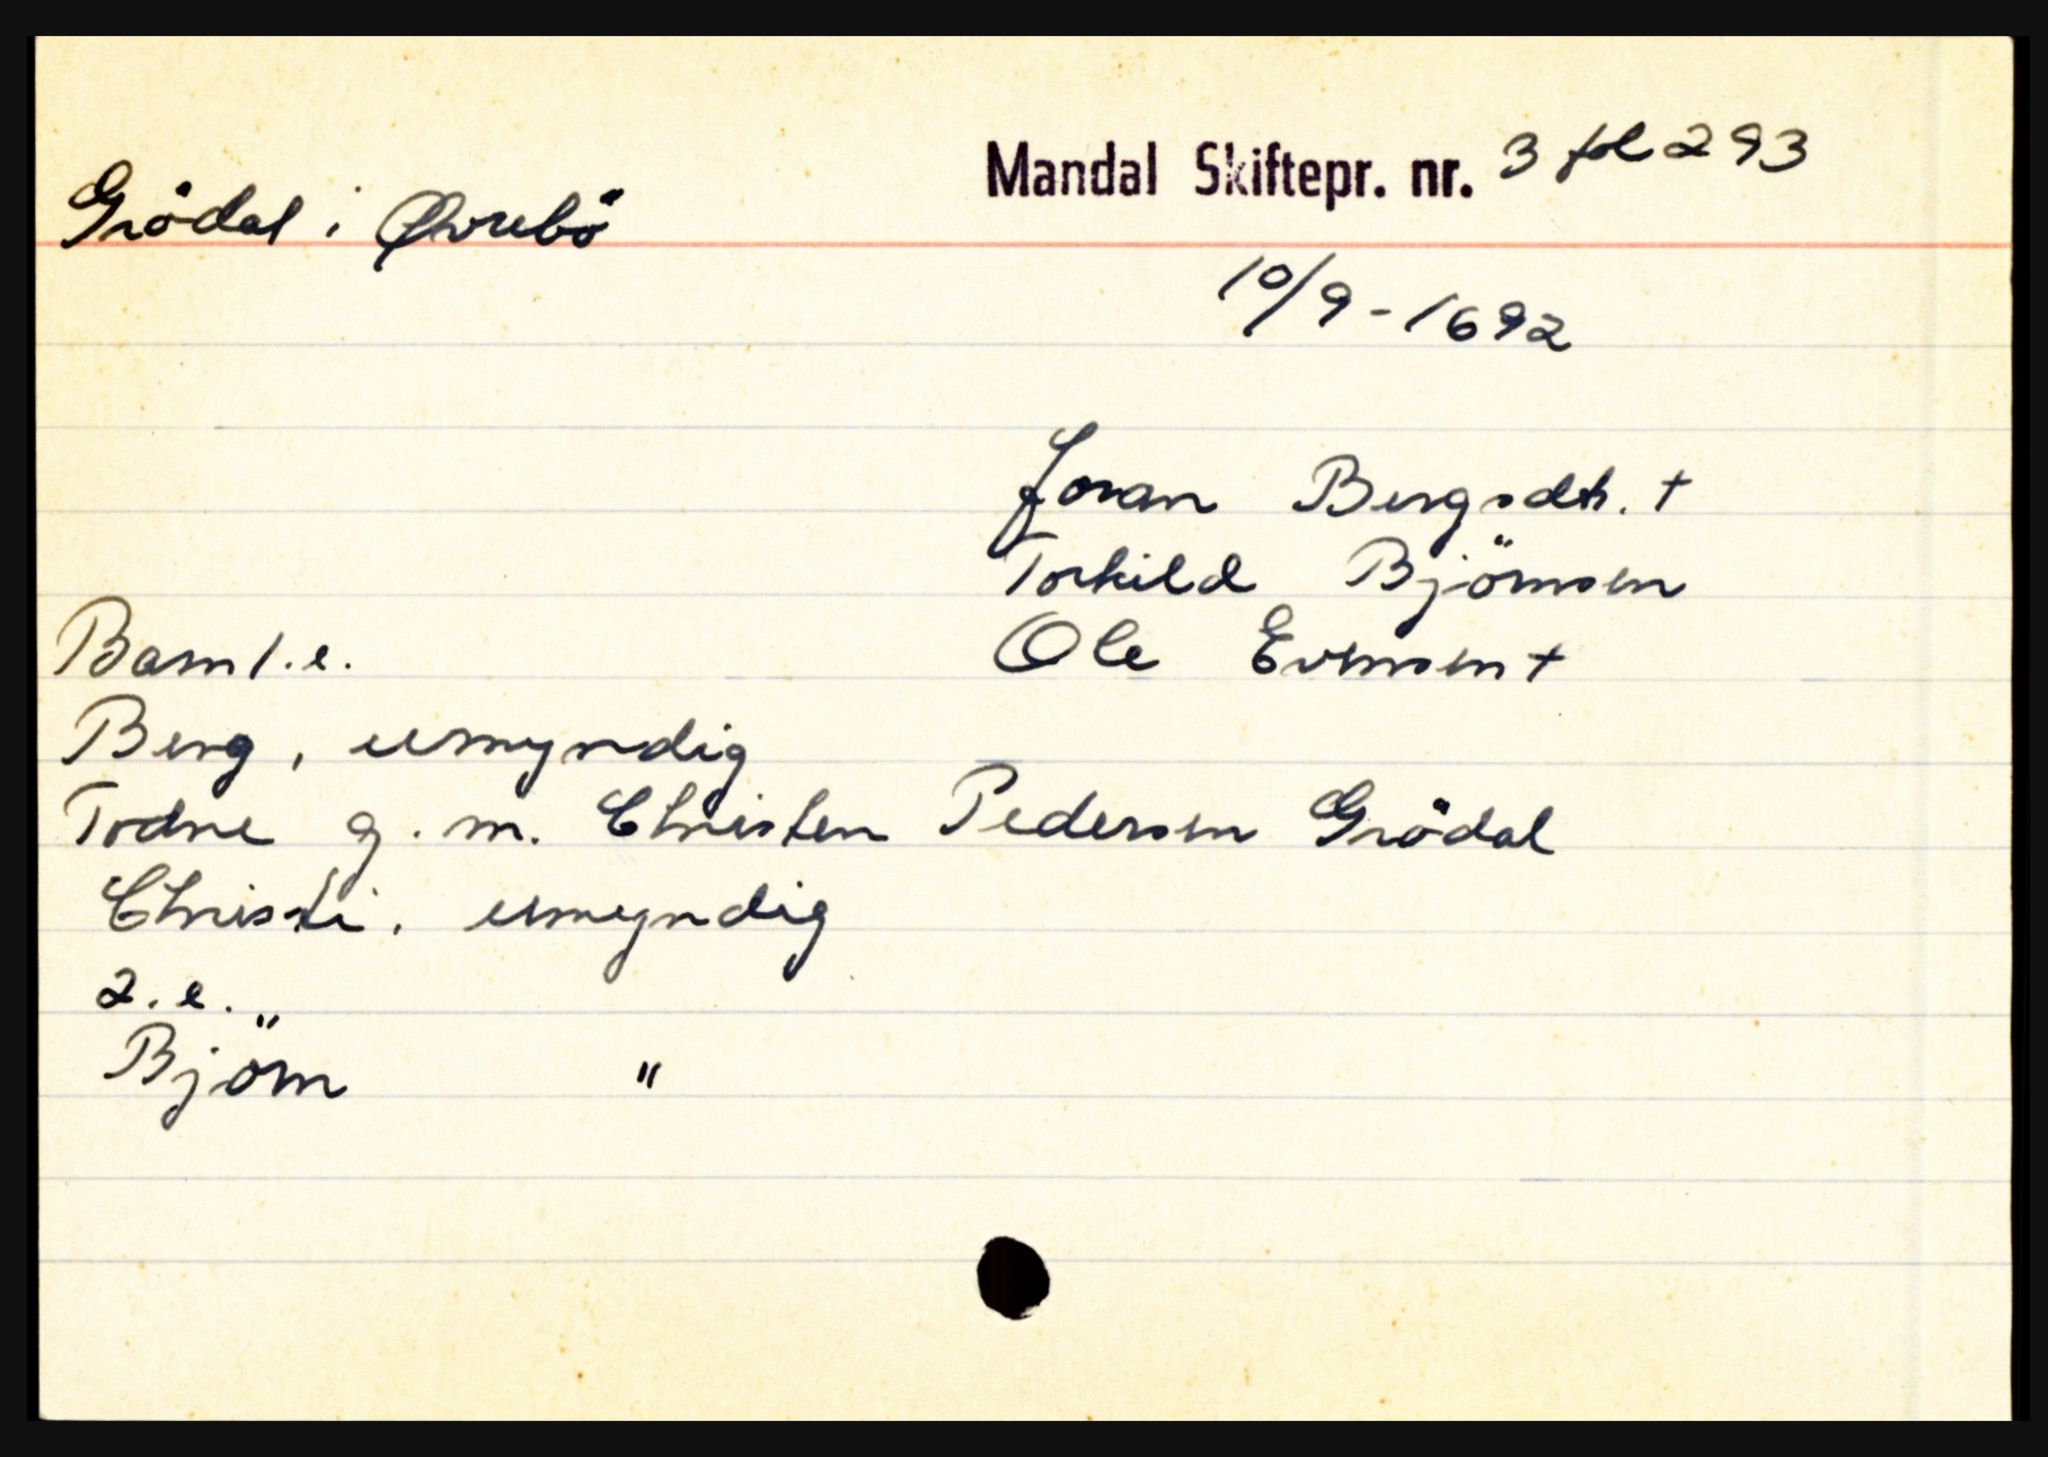 Mandal Skiftepr. nr. 3 fol 293
Grödal i Øvrebö
10/9-1692
Joran Bergsdtr. +
Torkild Björnsen
Barn 1.e. Ole Evensen +
Berg, umyndig
Todne g.m. Christen Pedersen Grödal
Christi, umyndig
2.e.
Björn "